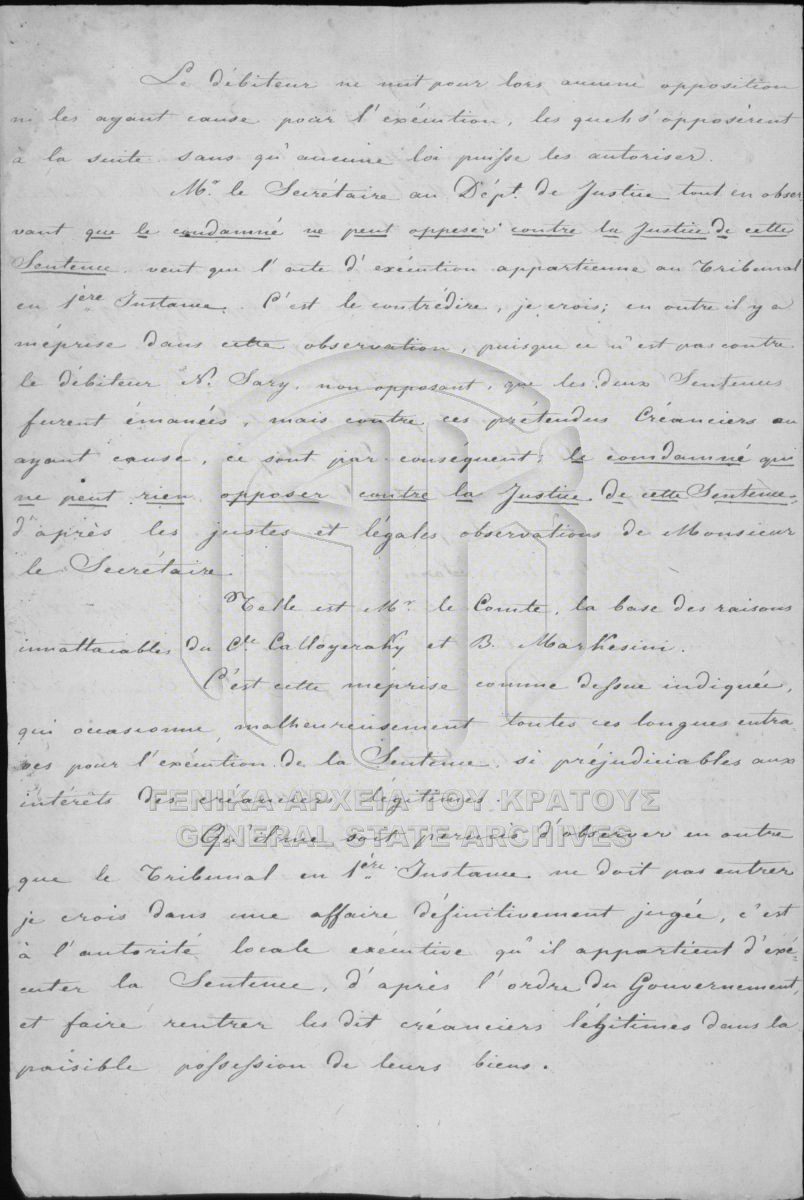 Le débiteur ne mit pour lors aucune opposition
ni les ayant cause pour l'exécution, les quels s'opposèrent
à la suite sans qu'aucune loi puisse les autoriser.
Mr. le Secrétaire au Dépt. de Justice tout en obser-
vant que le condamné ne peut opposer contre la Justice de cette
Sentence, veut que l'acte d'exécution appartienne au Tribunal
en 1ère Instance. C'est le contrédire, je crois; en outre il y a
méprise dans cette observation, puisque ce n'est pas contre
le débiteur N. Sary, non opposant, que les deux Sentences
furent émanées, mais contre ces prétendus Créanciers ou
ayant cause, ce sont par conséquent, le comdamné qui
ne peut rien opposer contre la Justice de cette Sentence,
d'après les justes et légales observations de Monsieur
le Secrétaire.
Telle est Mr. le Comte, la base des raisons
innattaiables du Cte Calloyeraky et B. Markesini.
C'est cette méprise comme dessue indiquée,
qui occasionne malheureusement toutes ces longues entra-
ves pour l'exécution de la Sentence, si préjudiciables aux
intérêts des créanciers légitimes.
ΓΕΝΙΚΑ ΑΡΧΕΙΑ ΤΟΥ ΚΡΑΤΟΥΣ
GENERAL STATE ARCHIVES
Qu'il me soit permis d'observer en outre
que le Tribunal en 1ère Instance ne doit pas entrer
je crois dans une affaire définitivement jugée, c'est
à l'autorité locale exécutive qu'il appartient d'exé-
cuter la Sentence, d'après l'ordre du Gouvernement,
et faire rentrer les dit créanciers légitimes dans la
paisible possession de leurs biens.